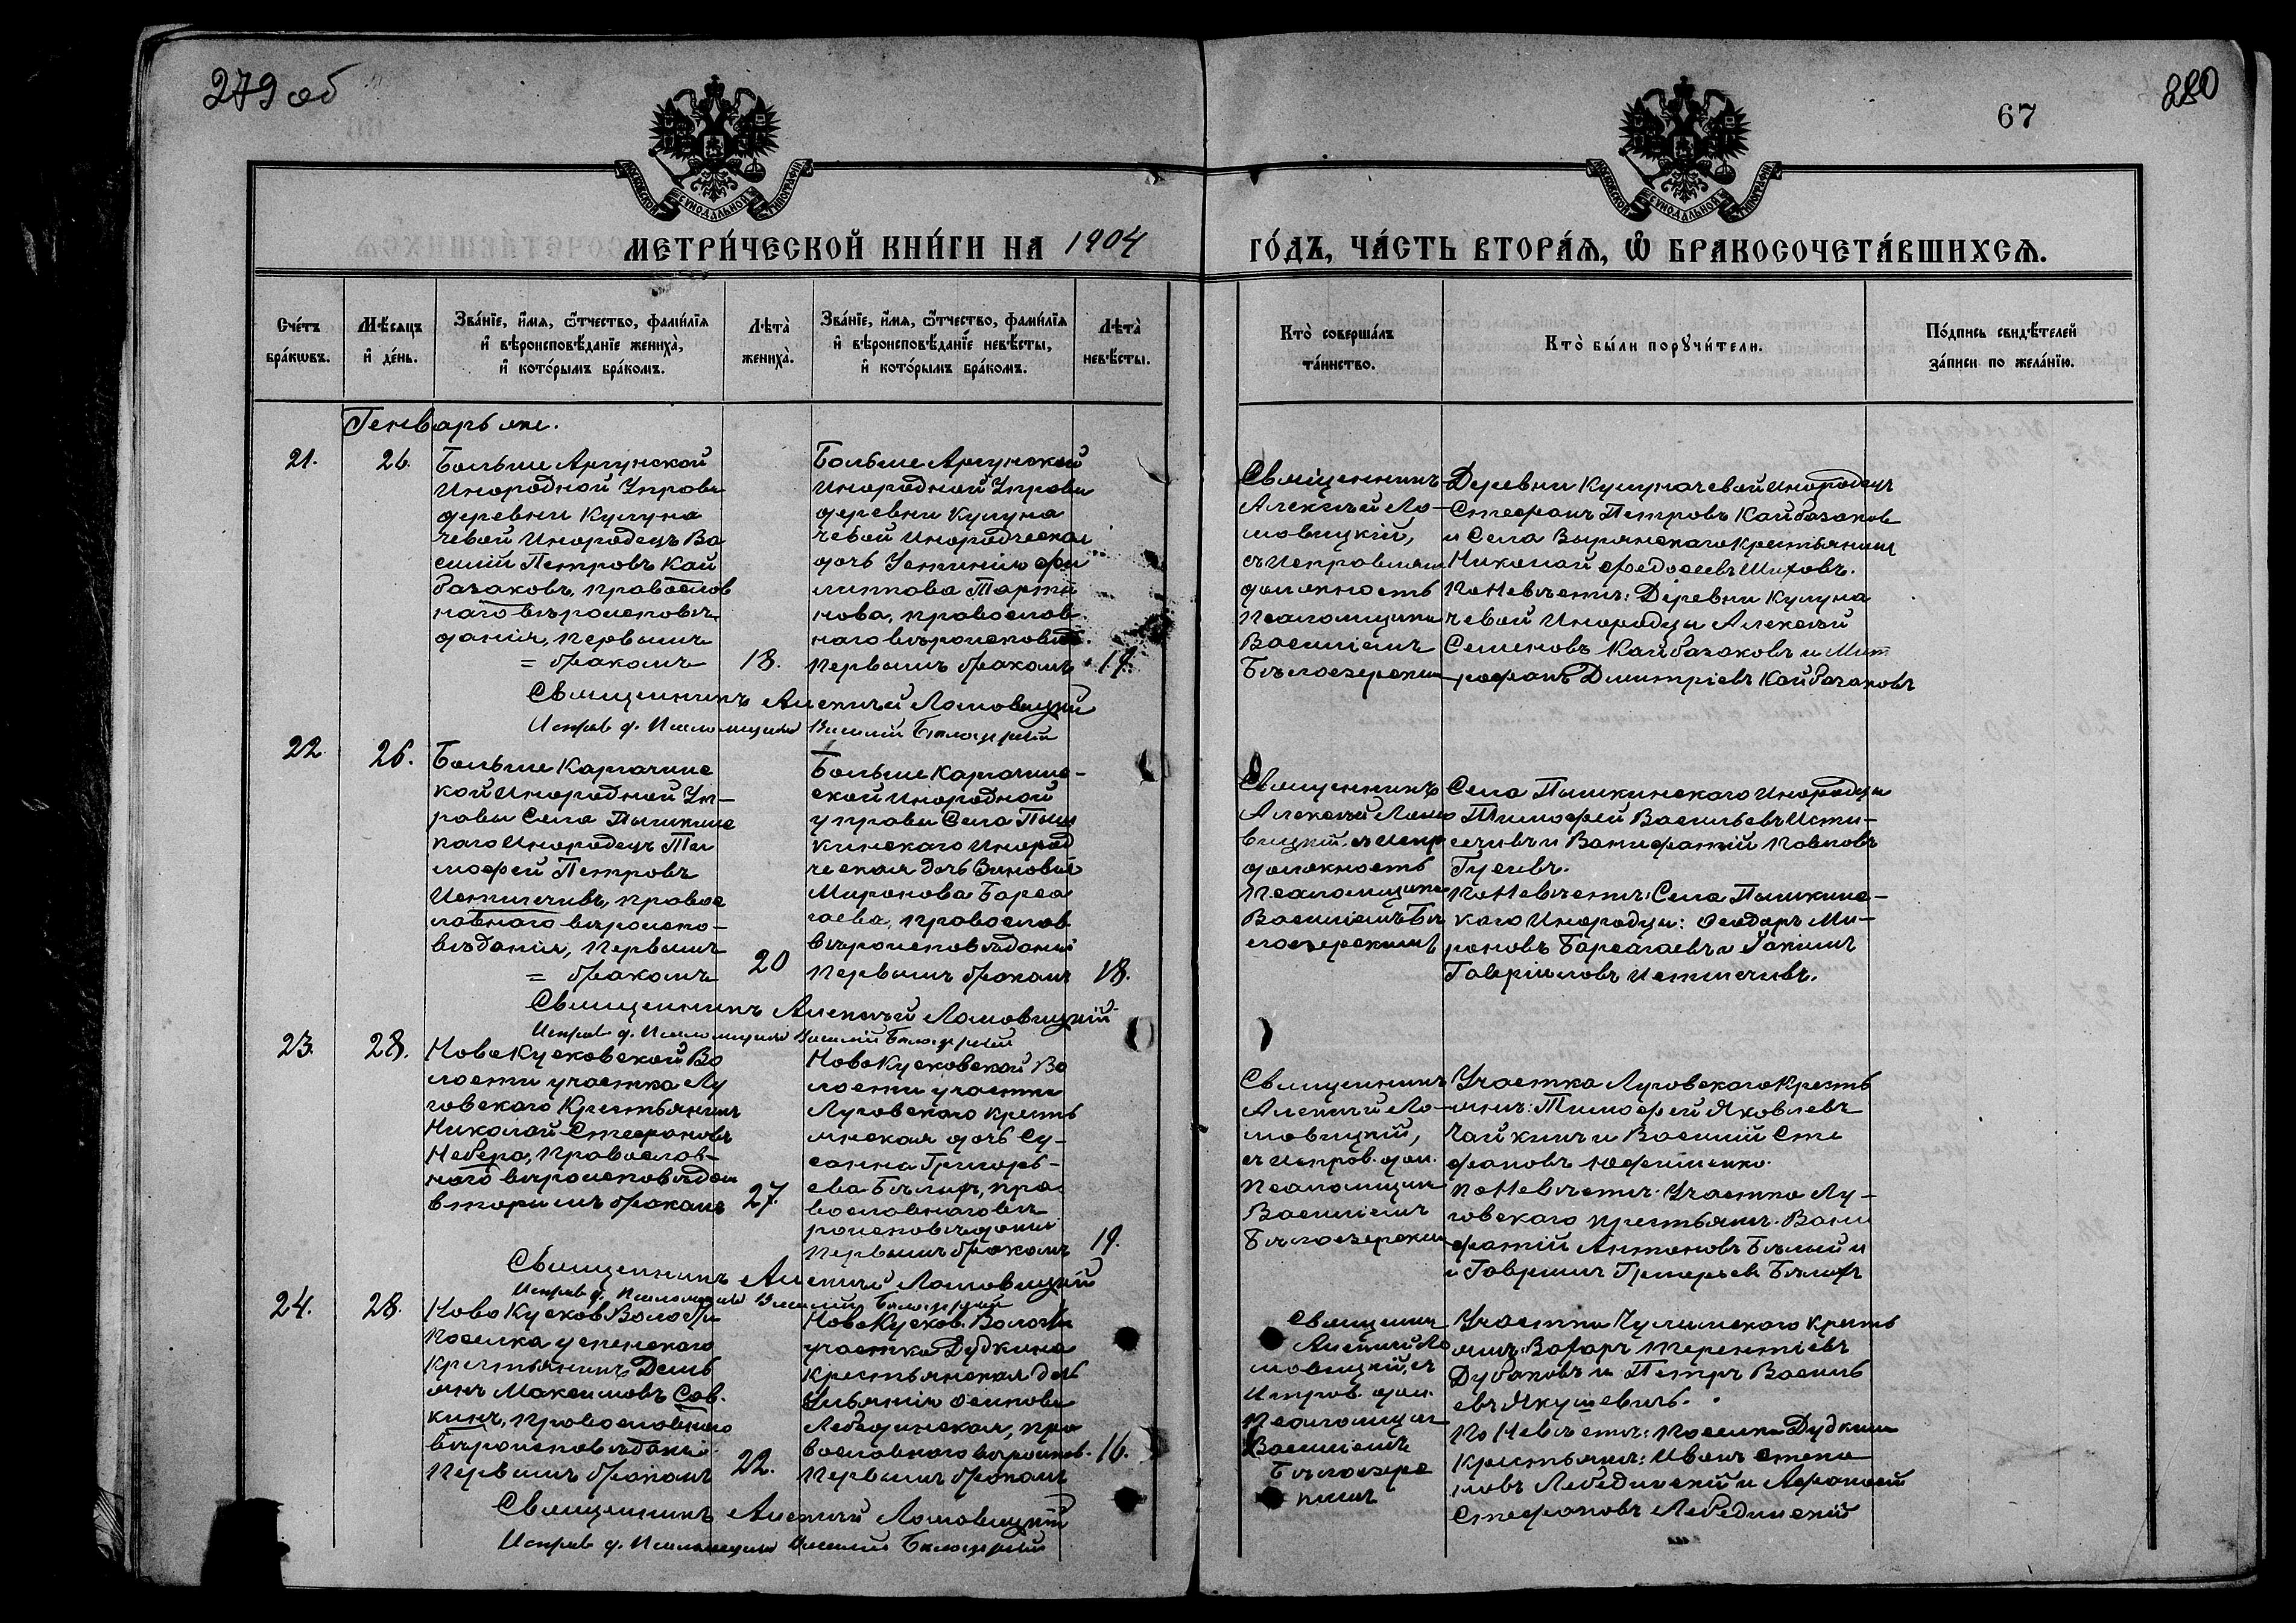 279 об
280
67
МОСКОВСКОЙ СѴНОДАЛЬНОЙ ТИПОГРАФІИ
МОСКОВСКОЙ СѴНОДАЛЬНОЙ ТИПОГРАФІИ
МЕТРИ́ЧЕСКОЙ КНИ́ГИ НА 1904
ГО́ДЪ, ЧА́СТЬ ВТОРА́Ѧ, Ѡ҆ БРАКОСОЧЕТА́ВШИХСѦ.
Сче́тъ бра́кѡвъ.
Мѣ́сяцъ и҆ де́нь.
Зва́нїе, и҆́мѧ, ѻ҆́тчество, фамѝлїѧ и҆ вѣроисповѣ́данїе жениха̀, и҆ кото́рымъ бра́комъ.
Лѣта̀ жениха̀.
Зва́нїе, и҆́мѧ, ѻ҆́тчество, фамѝлїѧ и҆ вѣроисповѣ́данїе невѣ́сты, и҆ кото́рымъ бра́комъ.
Лѣта̀ невѣ́сты.
Кто̀ соверша́лъ та́инство.
Кто̀ бы́ли порꙋчи́тели.
По́дпись свидѣ́телей за́писи по жела́нїю.
Генварь м.
21.
26.
Больше Аргунской
Инородной Управы
деревни Кулуна
чевой Инородецъ Ва
силій Петровъ Кай
базаковъ, православ
наго вѣроисповѣ
данія, первымъ
= бракомъ
18.
Больше Аргунской
Инородной Управы
деревни Кулуна
чевой Инородческая
дочь Устинія Фи
липпова Тарты
нова, православ
наго вѣроисповѣд.
первымъ бракомъ
19.
Священникъ
Алексѣй Ло-
мовицкій,
съ Исправляющ
должность
Псаломщика
Василіемъ
Бѣлозерскимъ
Деревни Кулуначевой Инородецъ
Стефанъ Петровъ Кайбазаковъ
и Села Вырянскаго крестьянинъ
Николай Федосеевъ Шиховъ.
По Невѣстѣ: Деревни Кулуна
чевой Инородцы Алексѣй
Семеновъ Кайбазаковъ и Мит
рофанъ Димитріевъ Кайбазаковъ
Священникъ Алексѣй Ломовицкій
Исправ д. Псаломщика Василій Бѣлозерскій
22
26.
Больше Каргачинс
кой Инородной Уп-
равы Села Пышкинс
каго Инородецъ Ти
мофей Петровъ
Истигечивъ, правос
лавнаго вѣроиспо-
вѣданія, первымъ
= бракомъ
20
Больше Каргачин-
ской Инородной
управы Села Пыш
кинскаго Инород
ческая дочь Зиновія
Миронова Барса
гаева, православ
вѣроисповѣданія
первымъ бракомъ
18.
Священникъ
Алексѣй Ломо
вицкій, съ Испр
должность
Псаломщика
Василіемъ Бѣ
лозерскимъ
Села Пышкинскаго Инородцы
Тимофей Васильевъ Исти-
гечивъ и Вонифатій Павловъ
Гусевъ.
По Невѣстѣ: Села Пышкинс-
каго Инородцы: Ѳеодоръ Ми-
роновъ Барсагаевъ и Іакимъ
Гавриловъ Истигечивъ.
Священникъ Алексѣй Ломовицкій
Исправ д. Псаломщика Василій Бѣлозерскій
23.
28.
Ново Кусковской Во
лости участка Лу
говскаго Крестьянинъ
Николай Стефановъ
Небера, православ-
наго вѣроисповѣдан
вторымъ бракомъ
27.
Ново Кусковской Во
лости участка
Луговскаго кресть
янская дочь Су-
санна Григорь-
ева Бѣлый, пра
вославнаго вѣ
роисповѣданія
первымъ бракомъ
19.
Священникъ
Алексѣй Ло-
мовицкій,
съ Исправ. дол.
Псаломщик
Василіемъ
Бѣлозерским
Участка Луговскаго Кресть
яне: Тимофей Яковлевъ
Чайкинъ и Василій Сте
фановъ Юфименко.
По Невѣстѣ: Участка Лу-
говскаго крестьяне: Вони
фатій Антоновъ Бѣлый и
и Гавріилъ Григорьевъ Бѣлый
Священникъ Алексѣй Ломовицкій
Исправ д. Псаломщика Василій Бѣлозерскій
24.
28.
Ново Кусков. Волости
Поселка успенскаго
Крестьянинъ Демь
янъ Максимовъ Сав.
кинъ, православнаго
вѣроисповѣданія
первымъ бракомъ
22.
Ново Кусков. Волости
участка Дудкина
Крестьянская дочь
Ульянія Осипова
Лебединская, пра
вославнаго вѣроиспов.
первымъ бракомъ
16.
Священник
Алексѣй Ло
мовицкій, съ
Исправ. дол.
Псаломщик
Василіемъ
Бѣлозерс
кимъ
Участка Чулымскаго кресть
яне: Захаръ Терентіевъ
Дубаковъ и Петръ Василь
евъ Якушевичъ.
По Невѣстѣ: Поселка Дудкина
крестьяне: Иванъ Степа
новъ Лебединскій и Афанасій
Стефановъ Лебединскій
Священникъ Алексѣй Ломовицкій
Исправ д. Псаломщика Василій Бѣлозерскій